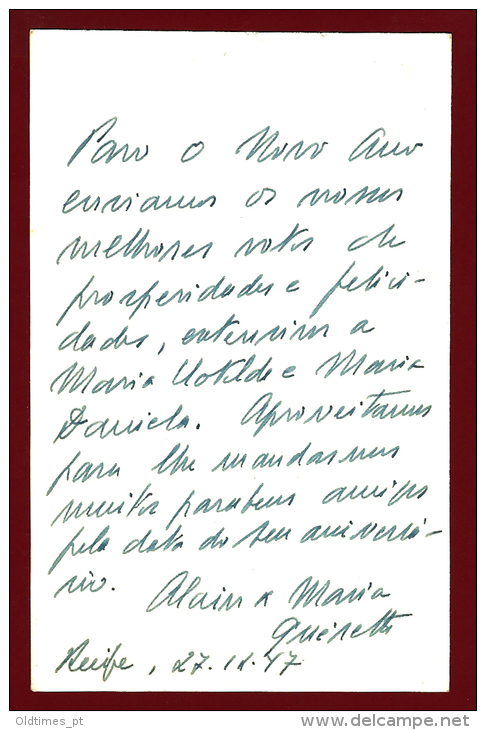 Para o Novo Ano
enviamos os nossos
melhores votos de
prosperidades e felici-
dades, extensivos a
Maria Clotilde e Maria
Daniela. Aproveitamos
para lhe mandarmos
muitos parabens amigos
pela data do seu aniversá-
rio.
Alain e Maria
Recife, 27.12.47
Oldtimes_pt
www.delcampe.net